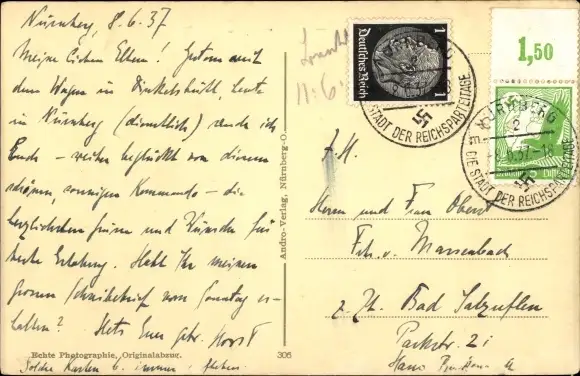 Nürnberg, 8.6.37
Meine lieben Eltern! Gestern mit
dem Wagen in Dinkelsbühl, heute
in Nürnberg (dienstlich) sende ich
Ende – weiter beglückt von diesem
schönen, sonnigen Kommando – die
herzlichsten Grüsse und Wünsche für
Erholung. Habt Ihr meinen
grossen Schreibebrief vom Sonntag er-
halten? Stets Euer gehr. Horst
Solche Karten b. immer
Echte Photographie, Originalabzug.
306
Andro-Verlag, Nürnberg-O.
11.6.
Deutsches Reich
1
1
1,50
NÜRNBERG
2
8.6.37-18
DIE STADT DER REICHSPARTEITAGE
STADT DER REICHSPARTEITAGE
Herrn und Frau Oberst
Frh. v. Massenbach
z. Zt. Bad Salzuflen
Parkstr. 2i
Haus